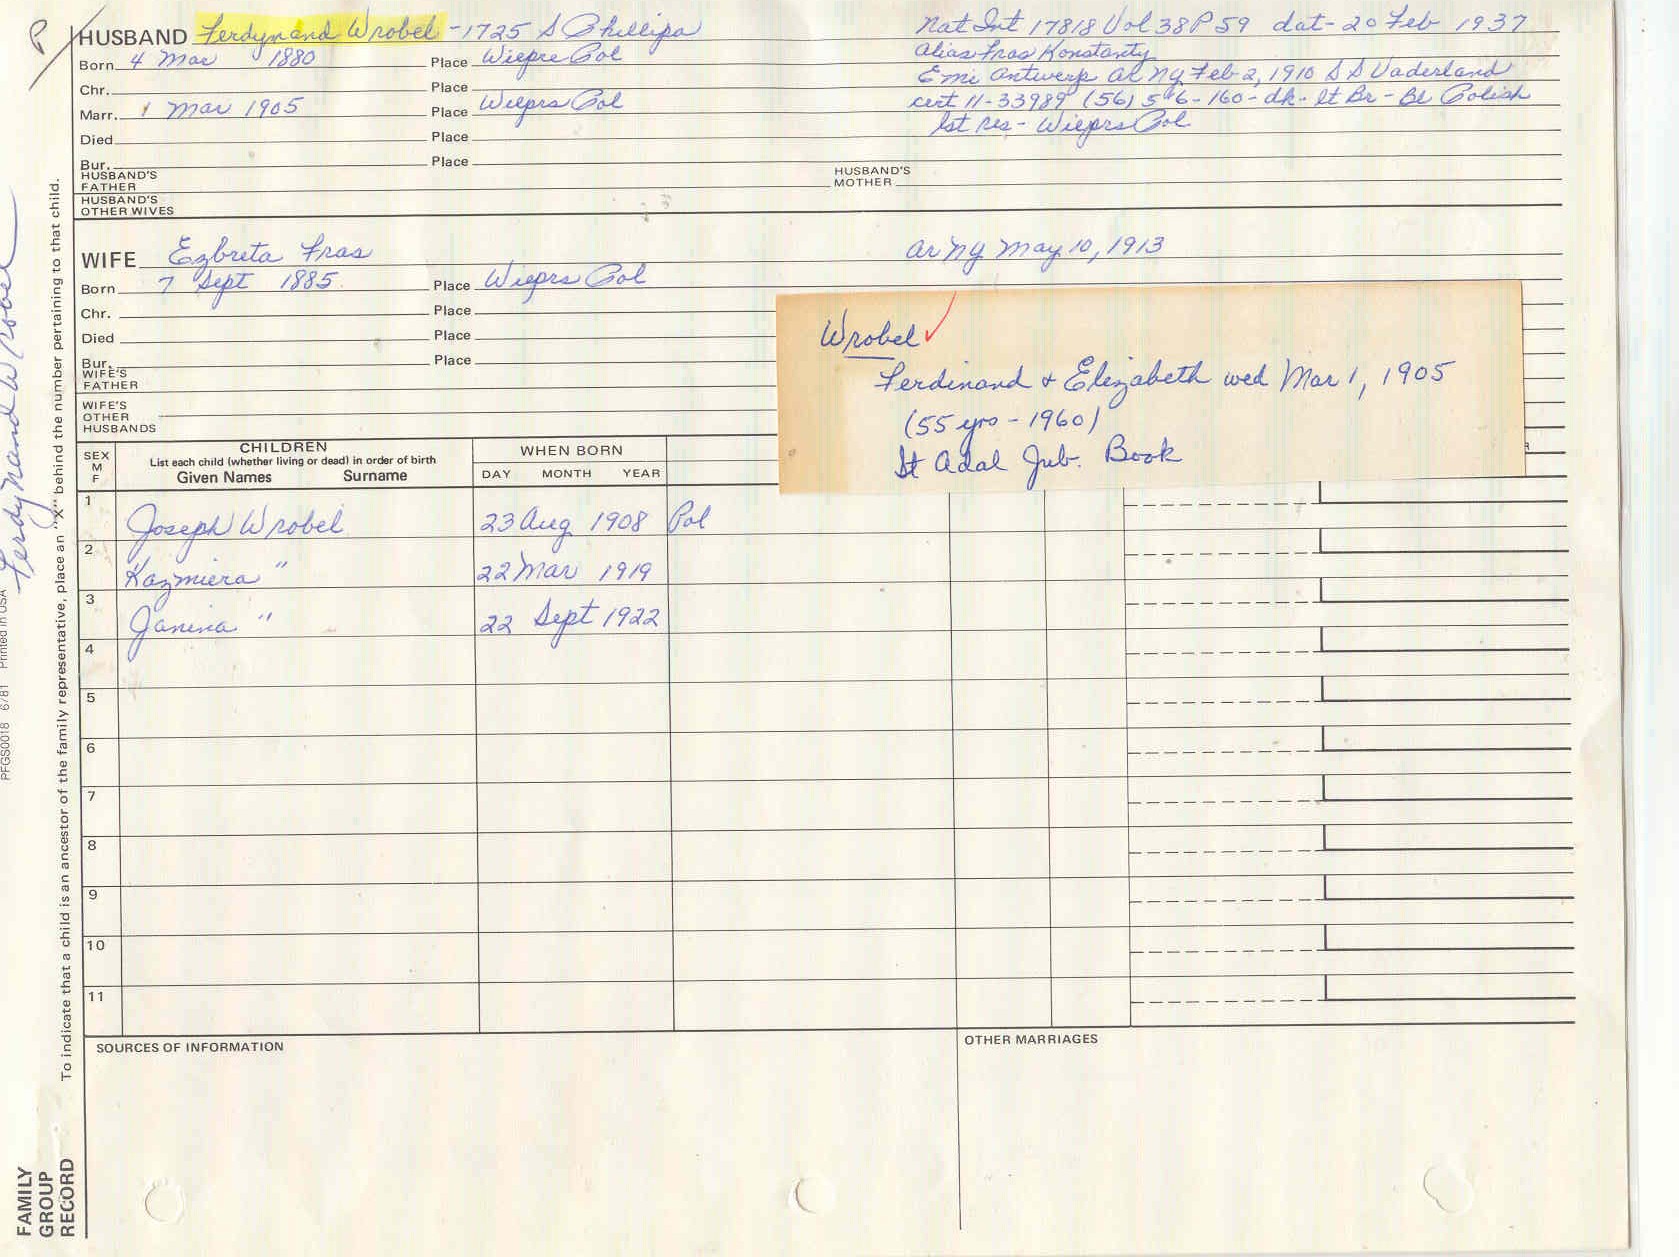 P
HUSBAND Ferdynand Wrobel - 1725 S Phillipa
Nat Int 17818 Vol 38 P 59 dat - 20 Feb 1937
Born 4 Mar 1880 Place Wiepre Pol
Alias Fras Konstanty
Chr. Place
Emi Antwerp ar Ny Feb 2, 1910 SS Vaderland
Marr. 1 Mar 1905 Place Wieprs Pol
cert 11-33989 (56) 5'6-160-dk-lt Br-Bl Polish
Died Place
lst res - Wieprs Pol
Bur. Place
HUSBAND'S FATHER
HUSBAND'S MOTHER
HUSBAND'S OTHER WIVES
WIFE Ezbreta Fras
ar Ny May 10, 1913
Born 7 Sept 1885 Place Wieprs Pol
Chr. Place
Died Place
Bur. Place
WIFE'S FATHER
WIFE'S OTHER HUSBANDS
Wrobel
Ferdinand & Elizabeth wed Mar 1, 1905
(55 yrs - 1960)
St Adal Jub. Book
SEX M F
CHILDREN
List each child (whether living or dead) in order of birth
Given Names Surname
WHEN BORN
DAY MONTH YEAR
1 Joseph Wrobel 23 Aug 1908 Pol
2 Kazmiera " 22 Mar 1919
3 Janina " 22 Sept 1922
4
5
6
7
8
9
10
11
SOURCES OF INFORMATION
OTHER MARRIAGES
To indicate that a child is an ancestor of the family representative, place an "X" behind the number pertaining to that child.
FAMILY
GROUP
RECORD
PFGS0018 6/81 Printed in USA
Ferdynand Wrobel